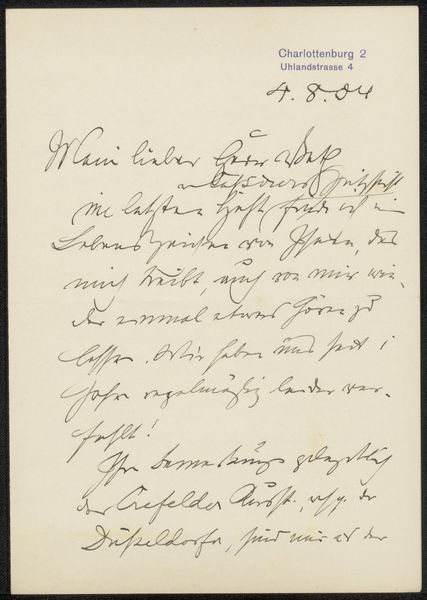 Charlottenburg 2
Uhlandstrasse 4
4. 8. 04
Mein lieber Herr
im letzten Heft finde ich ein
Lebenszeichen von Ihnen, das
mich treibt, auch von mir wie-
der einmal etwas hören zu
lassen. Wir haben uns seit 1
Jahr regelmäßig leider ver-
fehlt!
Ihre gelegentlich
der Crefelder Ausst., resp. der
Düsseldorfer, sind mir